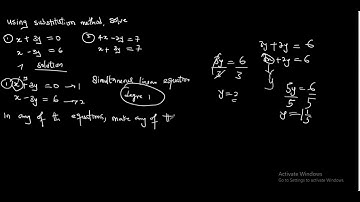 Using substitution method, solve
① x + 3y = 0 ② 4x - 2y = 7
x - 3y = 6 x + 3y = 7
Solution
① x + 3y = 0 → 1 Simultaneous linear equation
x - 3y = 6 → 2 degree 1
In any of the equations, make any of the
3y = 6
3 3
y = 2
3y + 2y = 6
+ 2y = 6
5y = 6
5 5
y = 1 1/5
Activate Windows
Go to Settings to activate Windows